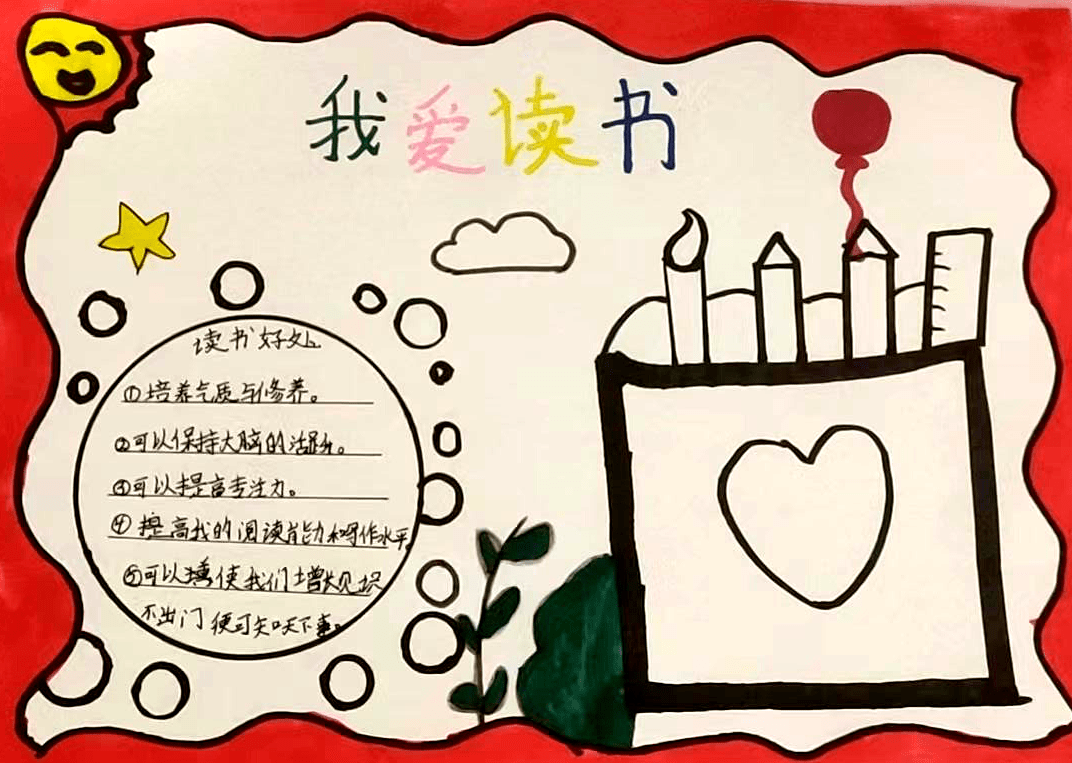 我爱读书
读书好处
①培养气质与修养。
②可以保持大脑的活跃。
③可以提高专注力。
④提高我的阅读能力和写作水平
⑤可以使我们增长见识
不出门便可知天下事。